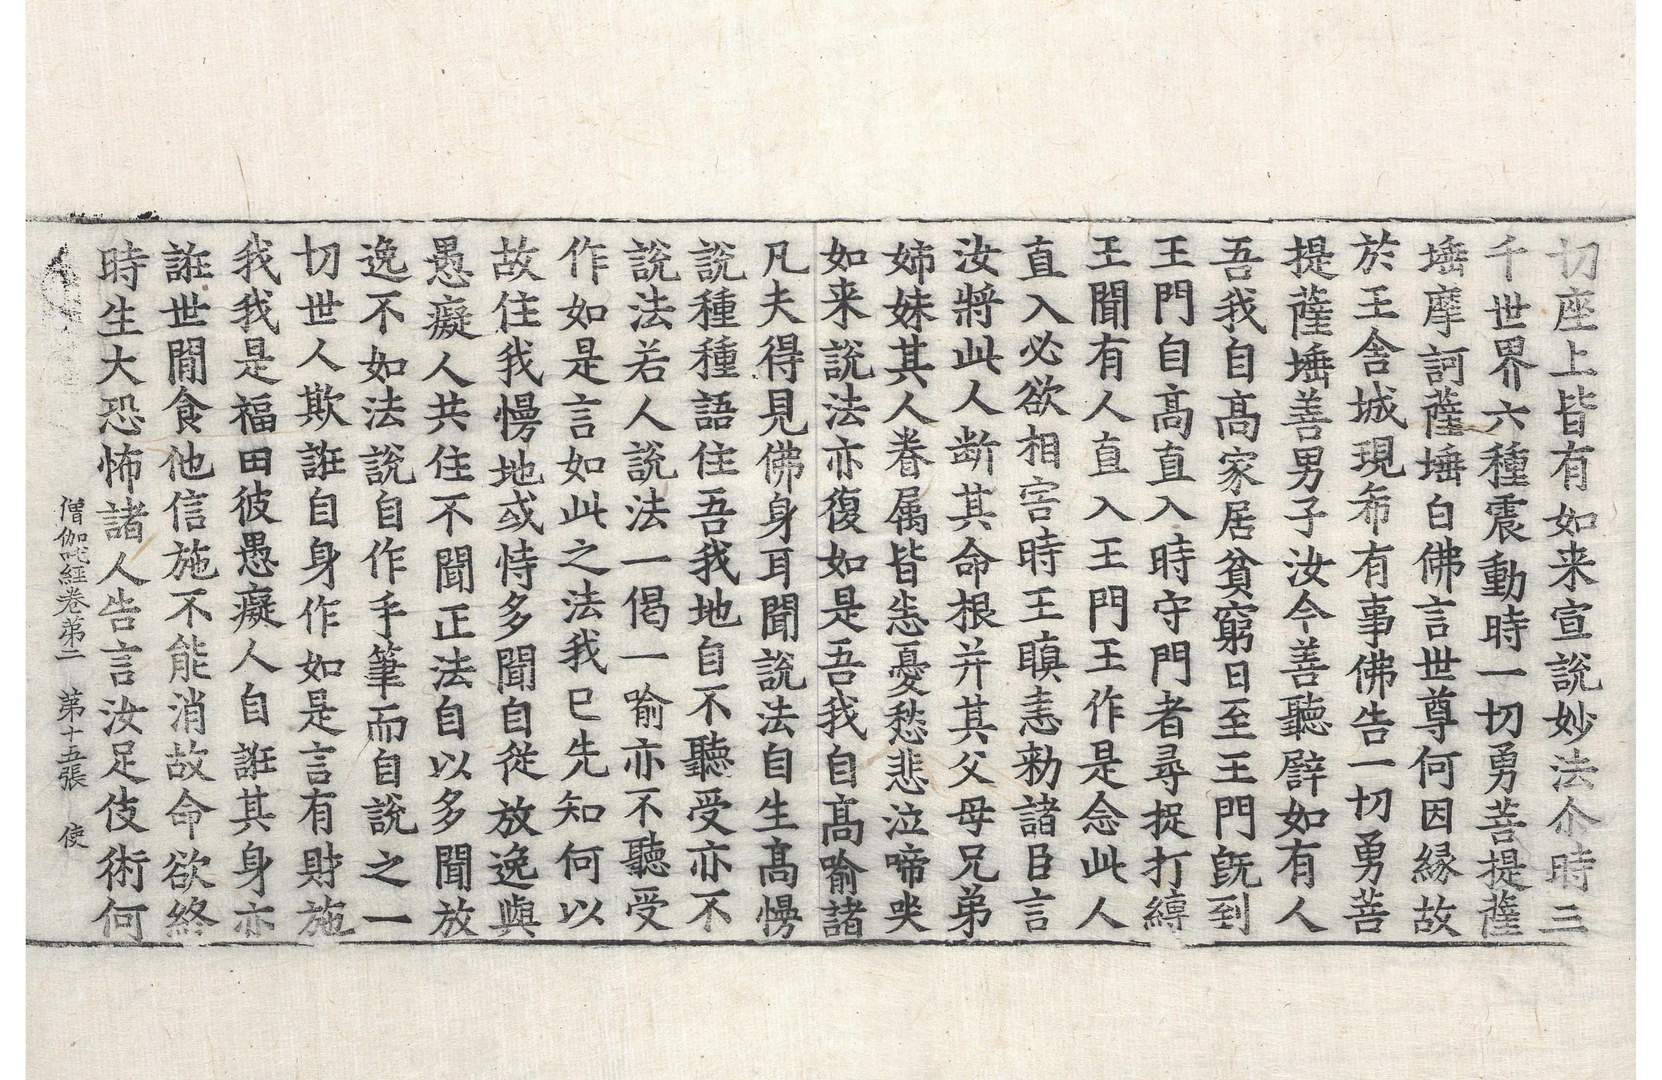 切座上皆有如来宣說妙法尒時三
千世界六種震動時一切勇菩提薩
埵摩訶薩埵白佛言世尊何因緣故
於王舍城現希有事佛告一切勇菩
提薩埵善男子汝今善聽譬如有人
吾我自高家居貧窮日至王門旣到
王門自高直入時守門者尋捉打縛
王聞有人直入王門王作是念此人
直入必欲相害時王瞋恚勑諸臣言
汝將此人断其命根并其父母兄弟
姊妹其人眷属皆恙憂愁悲泣啼哭
如来說法亦復如是吾我自高喻諸
凡夫得見佛身耳聞說法自生高慢
說種種語住吾我地自不聽受亦不
說法若人說法一偈一喻亦不聽受
作如是言如此之法我已先知何以
故住我慢地或恃多聞自從放逸與
愚癡人共住不聞正法自以多聞放
逸不如法說自作手筆而自說之一
切世人欺誑自身作如是言有財施
我我是福田彼愚癡人自誑其身亦
誑世間食他信施不能消故命欲終
時生大恐怖諸人告言汝足伎術何
僧伽吒經卷第二 第十五張 使